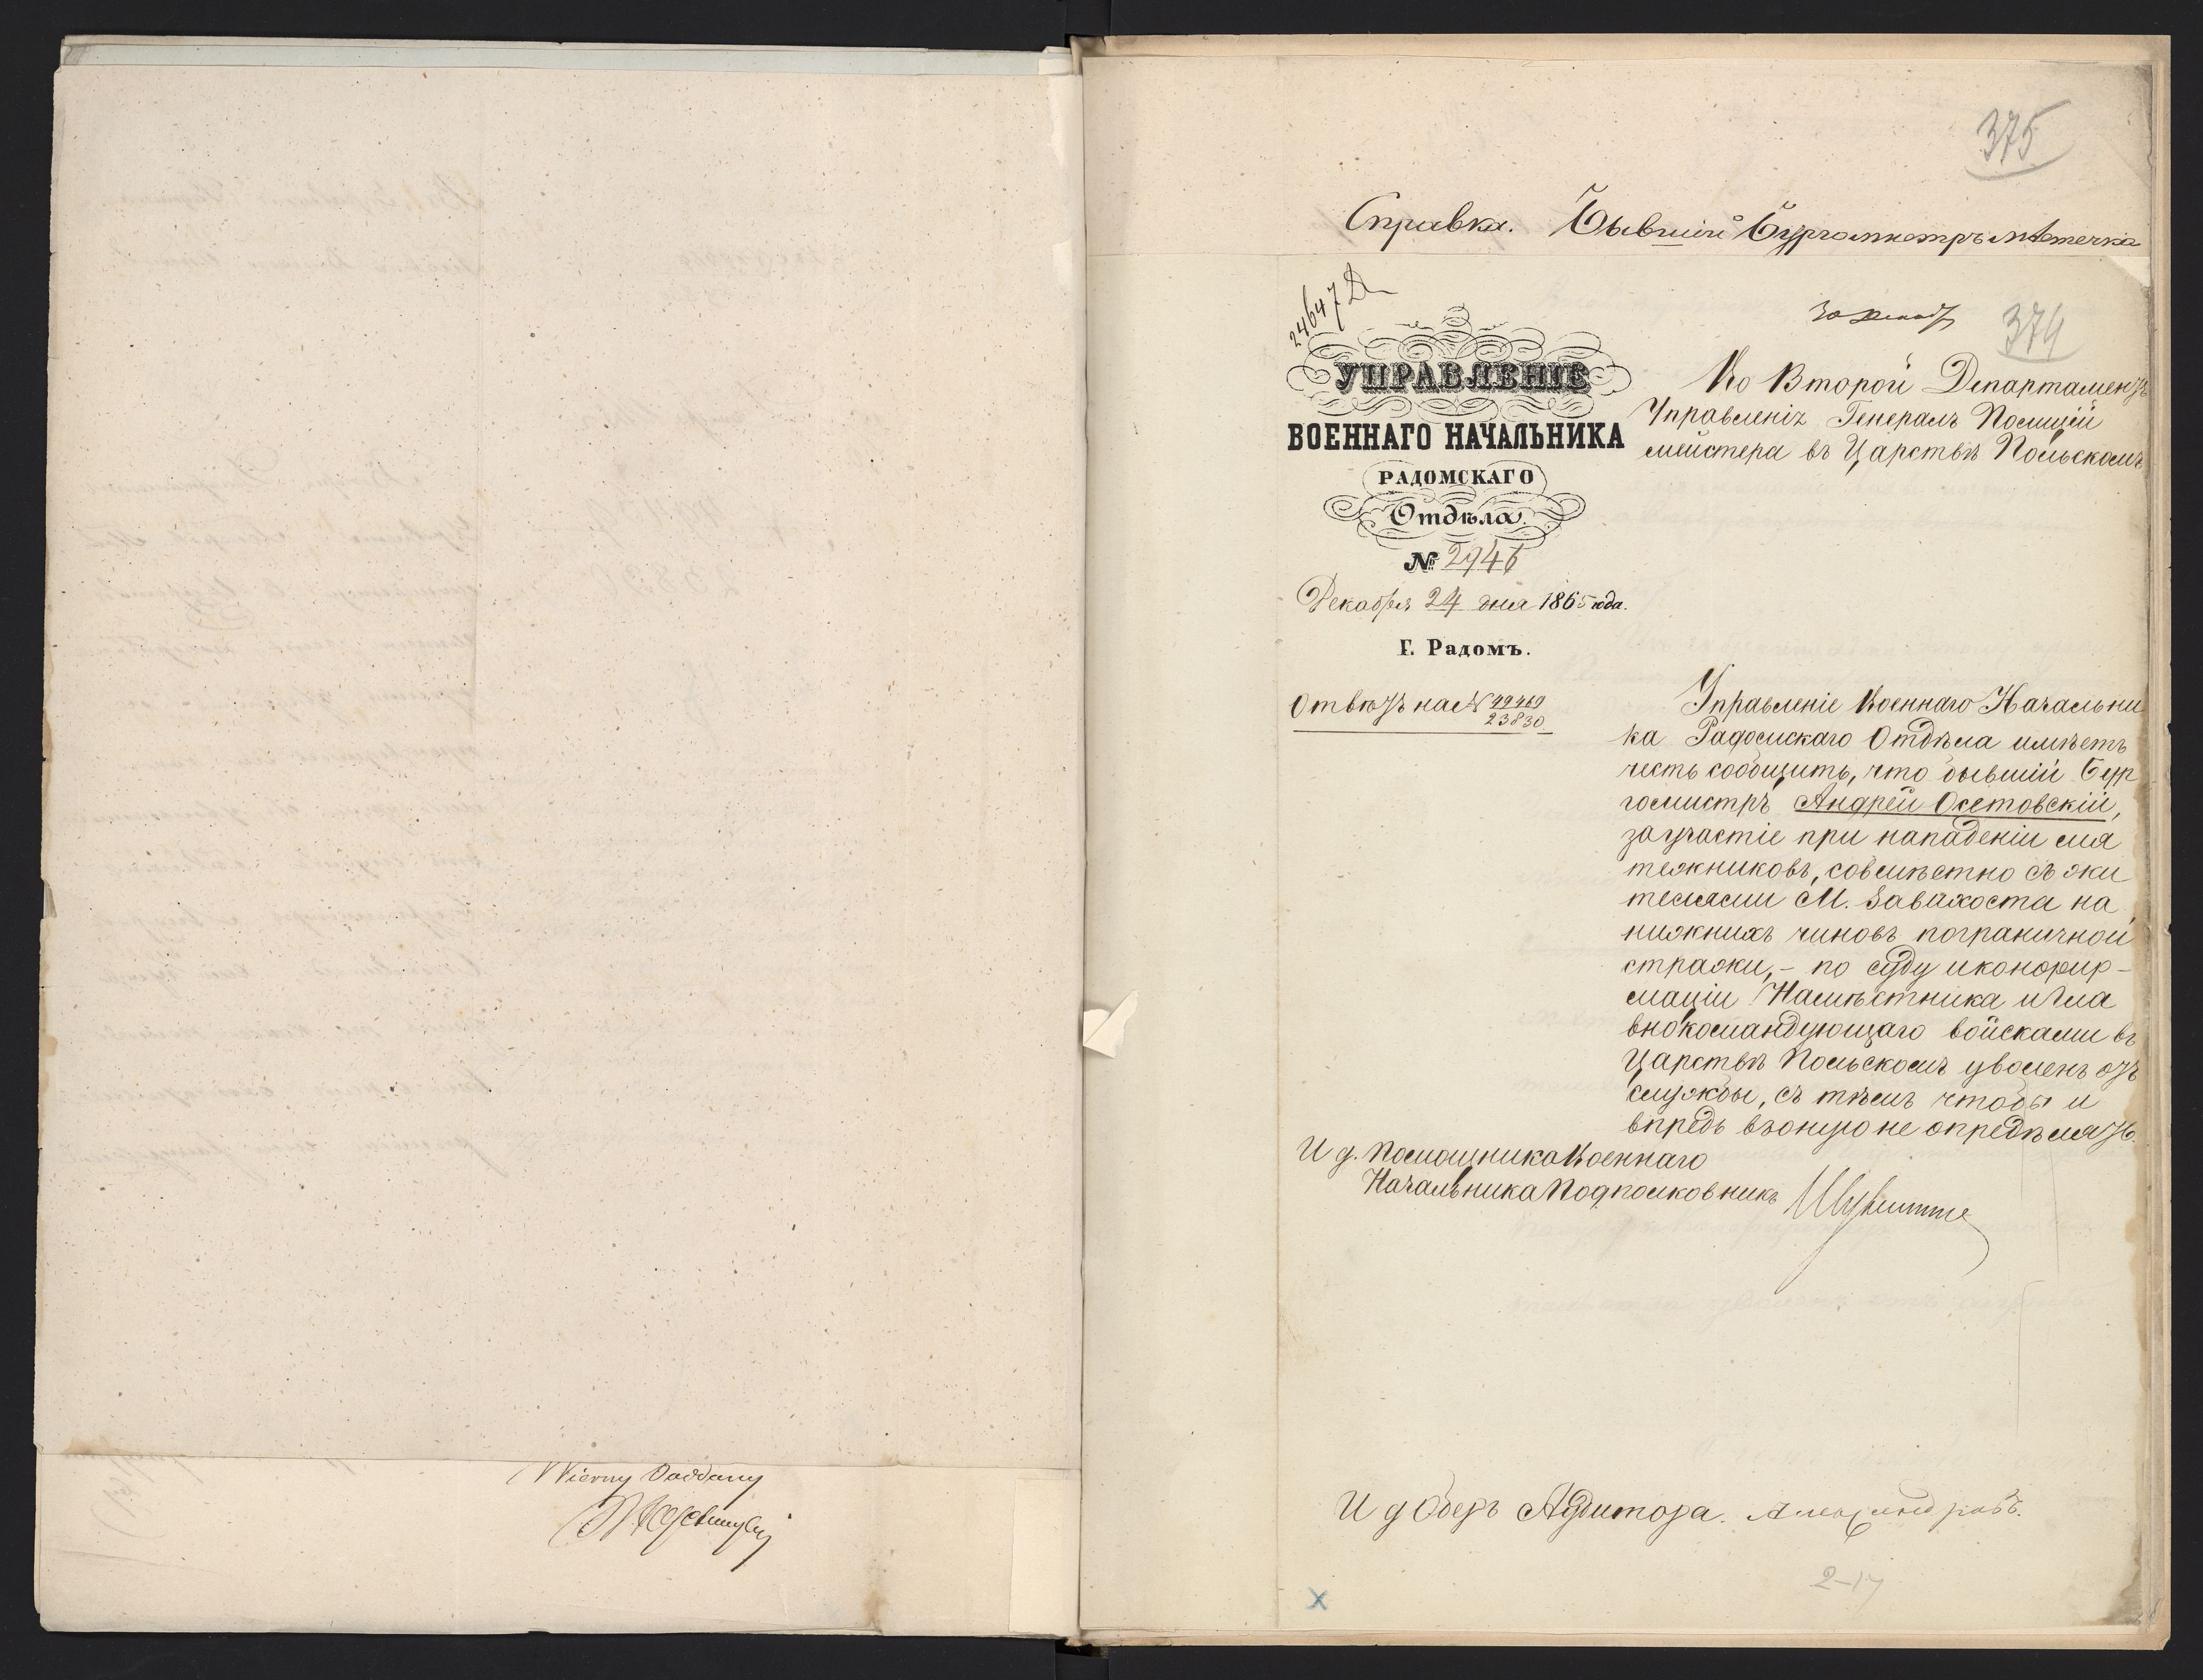 Wierny Poddany
375
Справка. Бывшій Бургомистръ мѣстечка
24647
30 Декаб
374
УПРАВЛЕНІЕ
ВОЕННАГО НАЧАЛЬНИКА
РАДОМСКАГО
Отдѣла.
№ 2946
Декабря 24 дня 1865 года.
Г. Радомъ.
Отвѣтъ на № 22469
23830
Во Второй Департаментъ
Управленія Генералъ Полицій
мейстера въ Царствѣ Польскомъ
Управленіе Военнаго Начальни
ка Радомскаго Отдѣла имѣетъ
честь сообщить, что бывшій Бур
гомистръ Андрей Осетовскій,
за участіе при нападеніи мя
тежниковъ, совмѣстно съ жи
телями М. Завихоста на
нижнихъ чиновъ пограничной
стражи, – по суду и конфир-
маціи Намѣстника и Гла
внокомандующаго войсками въ
Царствѣ Польскомъ уволенъ отъ
службы, съ тѣмъ чтобы и
впредь въ оную не опредѣлять.
И д. Помощника Военнаго
Начальника Подполковникъ
И д Оберъ Аудитора. Александровъ.
2-17
х